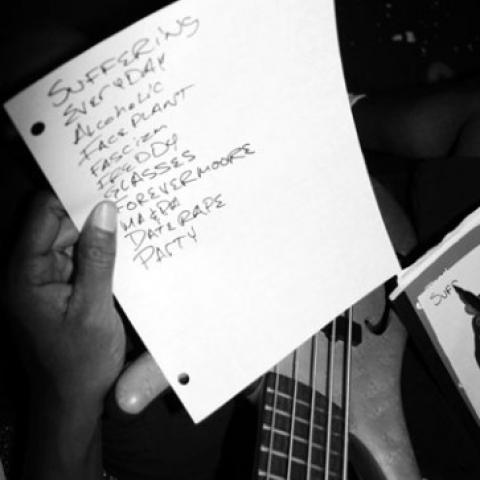 SUFFERING
EVERYDAY
ALCOHOLIC
FACEPLANT
FASCIZM
FREDDY
GLASSES
FOREVERMOORE
MA&PA
DATERAPE
PARTY
SUFF